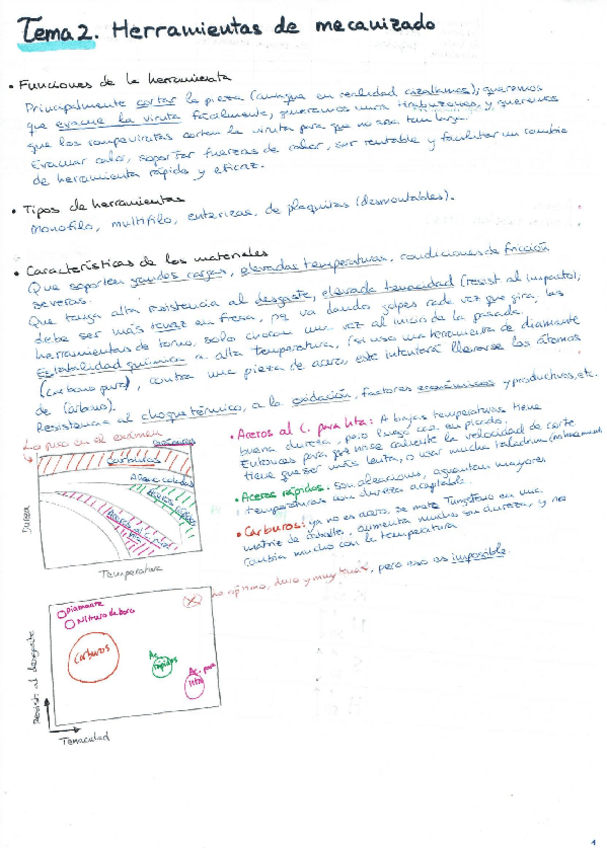 Tema 2. Herramientas de mecanizado
• Funciones de la herramienta
Principalmente cortar la pieza (aunque en realidad cizallamos); queremos
que evacue la viruta fácilmente, queremos y queremos
que los rompevirutas corten la viruta para que no sea tan larga.
Evacuar calor, soportar fuerzas de , ser rentable y facilitar un cambio
de herramienta rápido y eficaz.
• Tipos de herramientas
Monofilo, multifilo, enterizas, de plaquitas (desmontables).
• Características de los materiales
Que soporten grandes cargas, elevadas temperaturas, condiciones de fricción
severas.
Que tenga alta resistencia al desgaste, elevada tenacidad (resist. al impacto),
debe ser más tenaz en fresa, pq va dando golpes cada vez que gira, las
herramientas de torno, solo chocan una vez al inicio de la pasada.
Estabilidad química a alta temperatura, (si uso una herramienta de diamante
(carbono puro), contra una pieza de acero, este intentará llevarse los átomos
de carbono).
Resistencia al choque térmico, a la oxidación, factores económicos y productivos, etc.
Lo puso en el examen
Carburos
Dureza
Temperatura
• Aceros al C. para hta: A bajas temperaturas tiene
buena dureza, pero luego cae en picado.
Entonces para que no se caliente la velocidad de corte
tiene que ser más lenta, o usar mucha taladrina
• Aceros rápidos: son aleaciones, aguantan mayores
temperaturas una dureza aceptable.
• Carburos: ya no es acero. Se mete Tungsteno en una
matriz de cobalto, aumenta mucho su dureza, y no
cambia mucho con la temperatura
Lo óptimo, duro y muy tenaz, pero eso es imposible.
Diamante
Nitruro de boro
Carburos
Ac. rápidos
Ac. para hta
Resist. al desgaste
Tenacidad
1